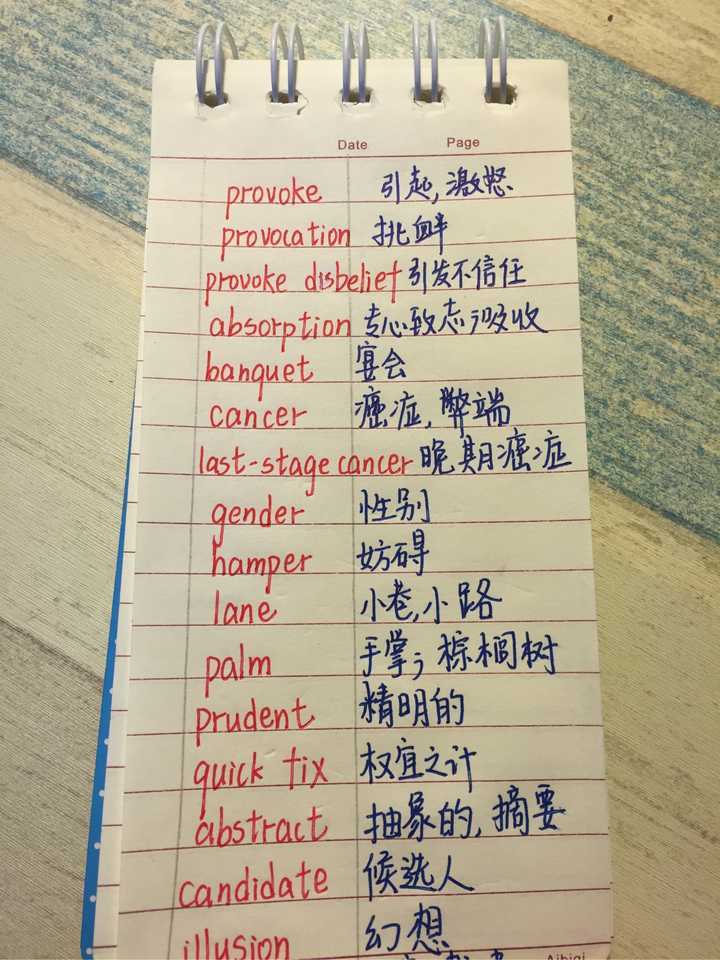 Date Page
provoke 引起,激怒
provocation 挑衅
provoke disbelief 引发不信任
absorption 专心致志;吸收
banquet 宴会
cancer 癌症,弊端
last-stage cancer 晚期癌症
gender 性别
hamper 妨碍
lane 小巷,小路
palm 手掌;棕榈树
prudent 精明的
quick fix 权宜之计
abstract 抽象的,摘要
candidate 候选人
illusion 幻想